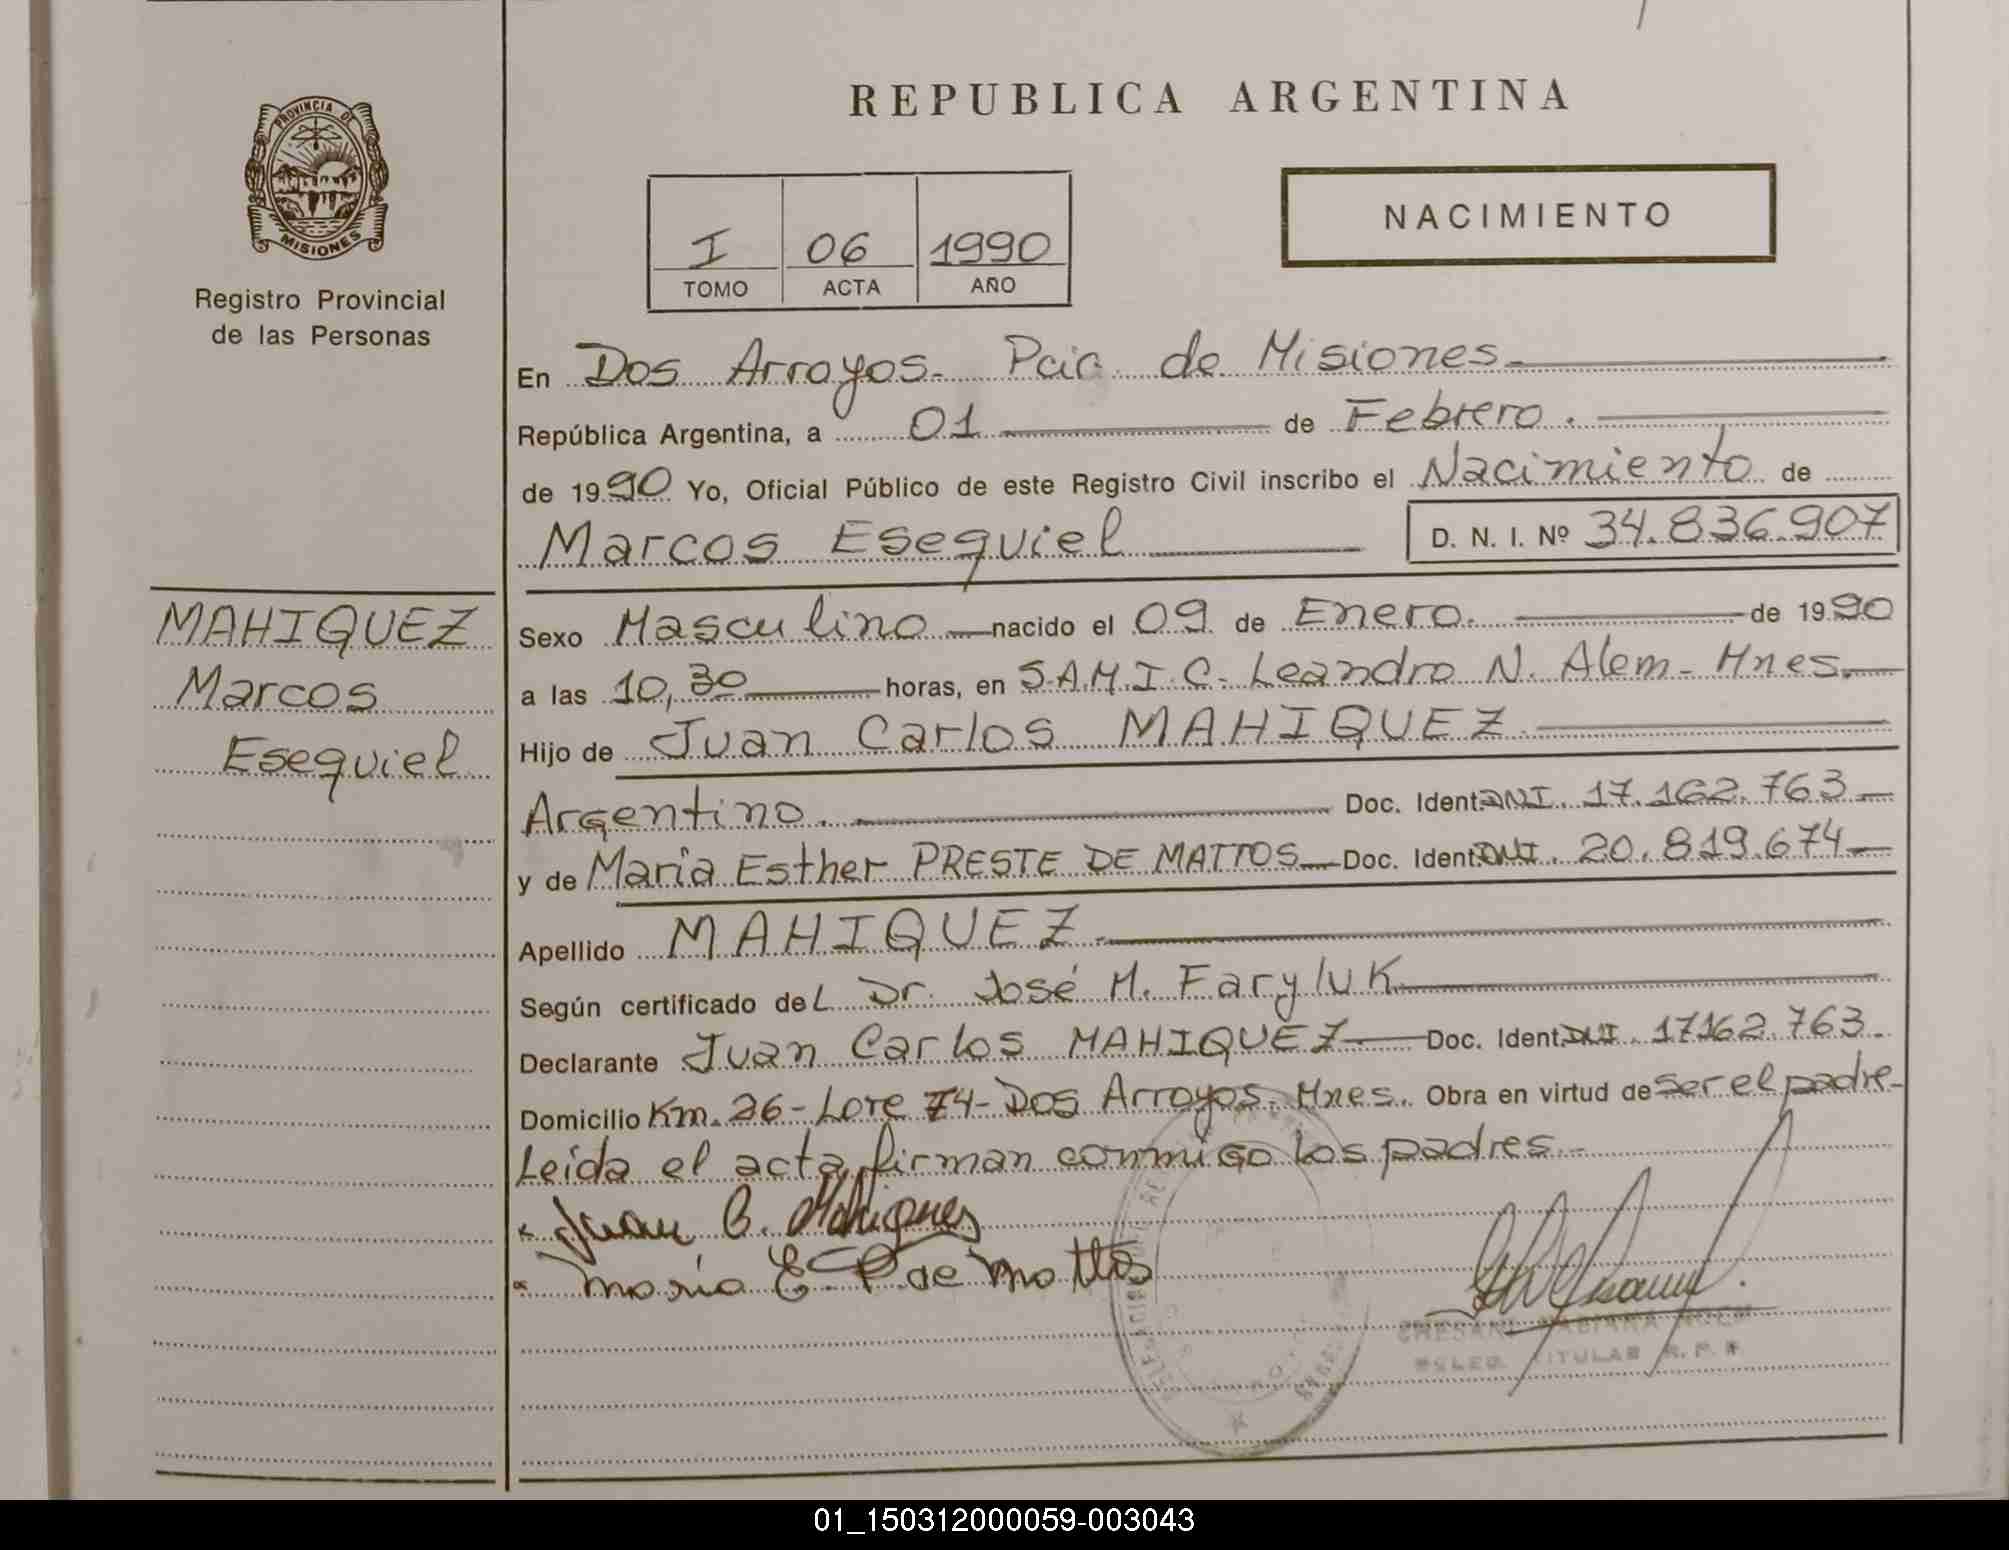 REPUBLICA ARGENTINA
PROVINCIA DE
MISIONES
Registro Provincial
de las Personas
NACIMIENTO
I 06 1990
TOMO ACTA AÑO
En Dos Arroyos. Pcia de Misiones
República Argentina, a 01 de Febrero.
de 1990 Yo, Oficial Público de este Registro Civil inscribo el Nacimiento de
Marcos Esequiel D. N. I. Nº 34.836.907
MAHIQUEZ
Marcos
Esequiel
Sexo Masculino nacido el 09 de Enero. de 1990
a las 10,30 horas, en S.A.M.I.C. Leandro N. Alem - Mnes.
Hijo de Juan Carlos MAHIQUEZ
Argentino. Doc. Ident. DNI. 17.162.763
y de Maria Esther PRESTE DE MATTOS Doc. Ident. DNI. 20.819.674
Apellido MAHIQUEZ.
Según certificado del Dr. José M. Faryluk
Declarante Juan Carlos MAHIQUEZ Doc. Ident. DNI. 17162.763.
Domicilio Km. 26 - Lote 74 - Dos Arroyos. Mnes. Obra en virtud de ser el padre-
Leída el acta, firman conmigo los padres.-
Juan C. Mahiquez
Maria E. P de Mattos
TITULAR R. P. P.
01_150312000059-003043